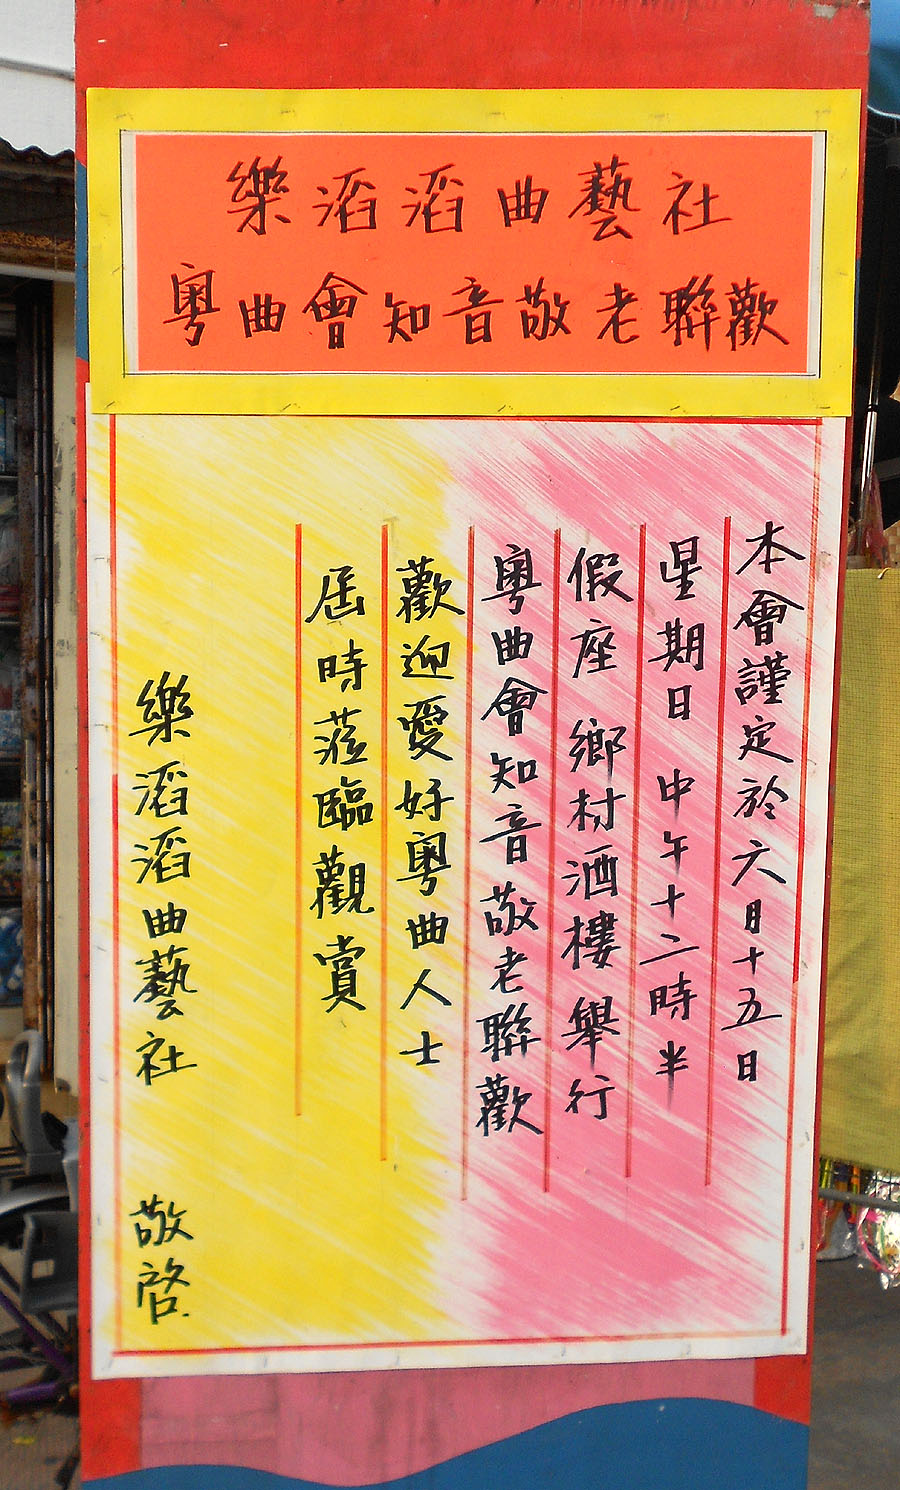 樂滔滔曲藝社
粵曲會知音敬老聯歡
本會謹定於六月十五日
星期日 中午十二時半
假座 鄉村酒樓 舉行
粵曲會知音敬老聯歡
歡迎愛好粵曲人士
屆時蒞臨觀賞
樂滔滔曲藝社 敬啓